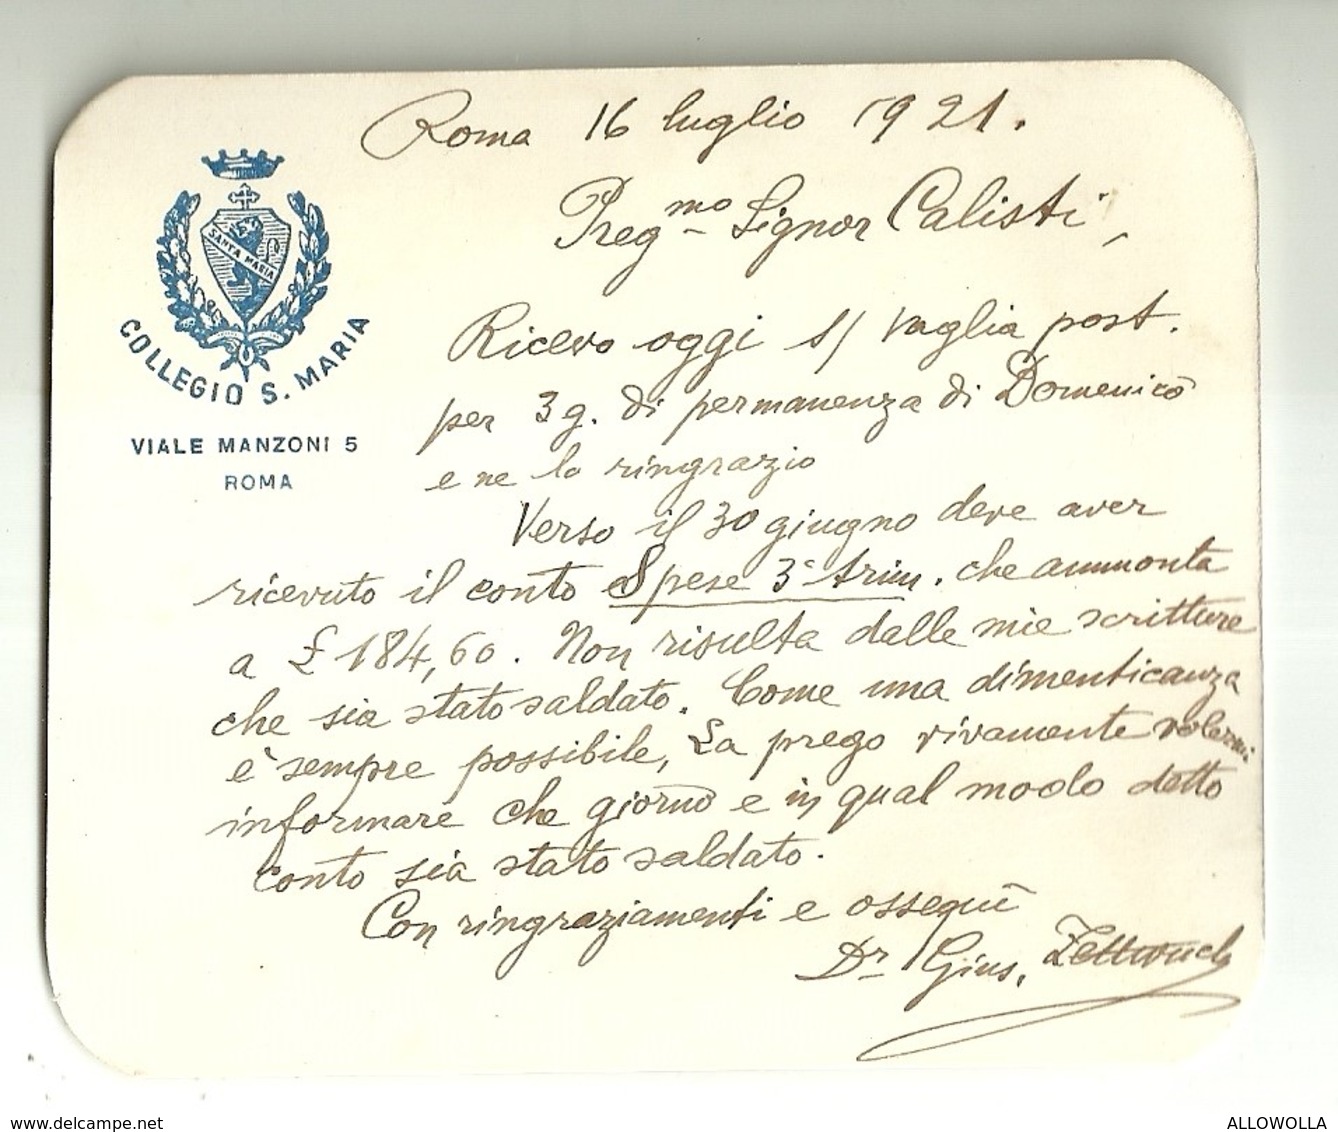 Roma 16 luglio 1921.
Preg.mo Signor Calisti,
SANTA MARIA
COLLEGIO S. MARIA
VIALE MANZONI 5
ROMA
Ricevo oggi s/ vaglia post.
per 3 g. di permanenza di Domenico
e ne lo ringrazio
Verso il 30 giugno deve aver
ricevuto il conto Spese 3° trim. che ammonta
a £ 184,60. Non risulta dalle mie scritture
che sia stato saldato. Come una dimenticanza
è sempre possibile, La prego vivamente volermi
informare che giorno e in qual modo detto
conto sia stato saldato.
Con ringraziamenti e ossequi
Dr Gius.
www.delcampe.net
ALLOWOLLA